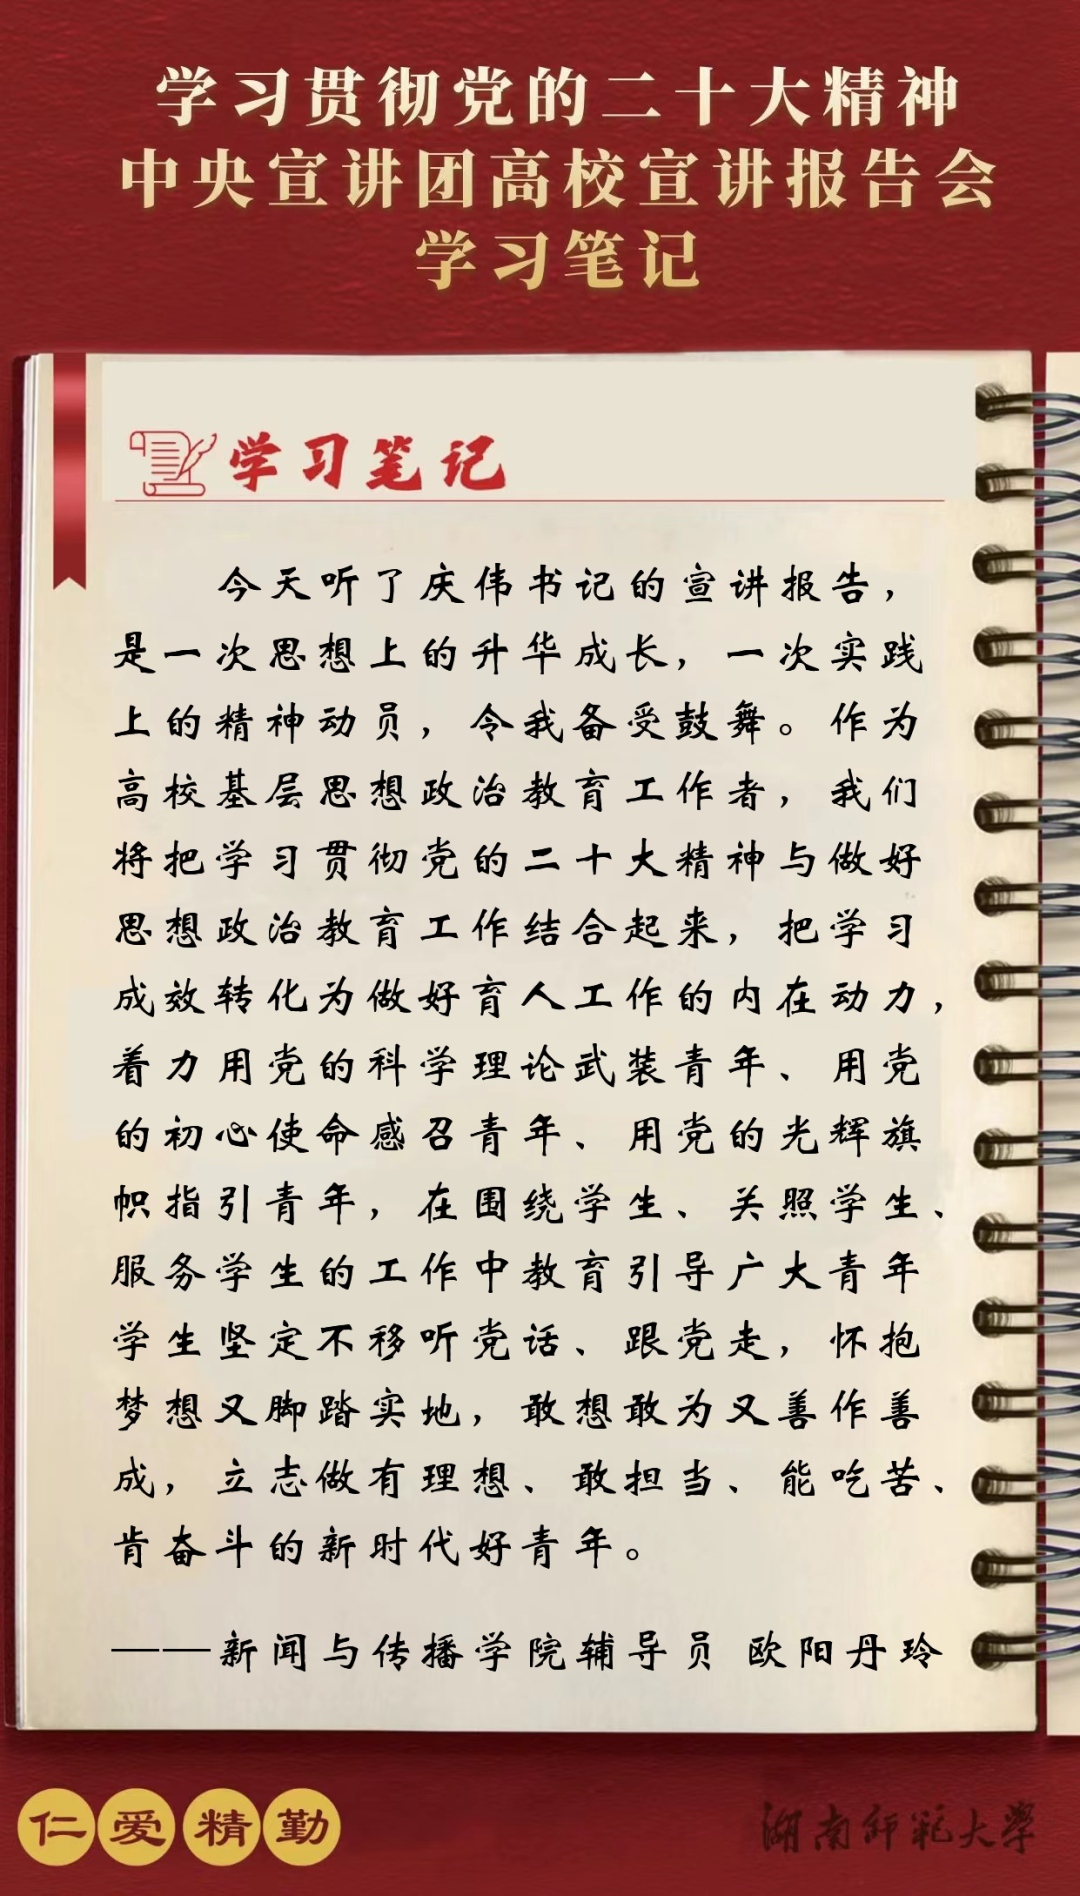 学习贯彻党的二十大精神
中央宣讲团高校宣讲报告会
学习笔记
学习笔记
今天听了庆伟书记的宣讲报告，
是一次思想上的升华成长，一次实践
上的精神动员，令我备受鼓舞。作为
高校基层思想政治教育工作者，我们
将把学习贯彻党的二十大精神与做好
思想政治教育工作结合起来，把学习
成效转化为做好育人工作的内在动力，
着力用党的科学理论武装青年、用党
的初心使命感召青年、用党的光辉旗
帜指引青年，在围绕学生、关照学生、
服务学生的工作中教育引导广大青年
学生坚定不移听党话、跟党走，怀抱
梦想又脚踏实地，敢想敢为又善作善
成，立志做有理想、敢担当、能吃苦、
肯奋斗的新时代好青年。
——新闻与传播学院辅导员 欧阳丹玲
仁爱精勤
湖南师范大学